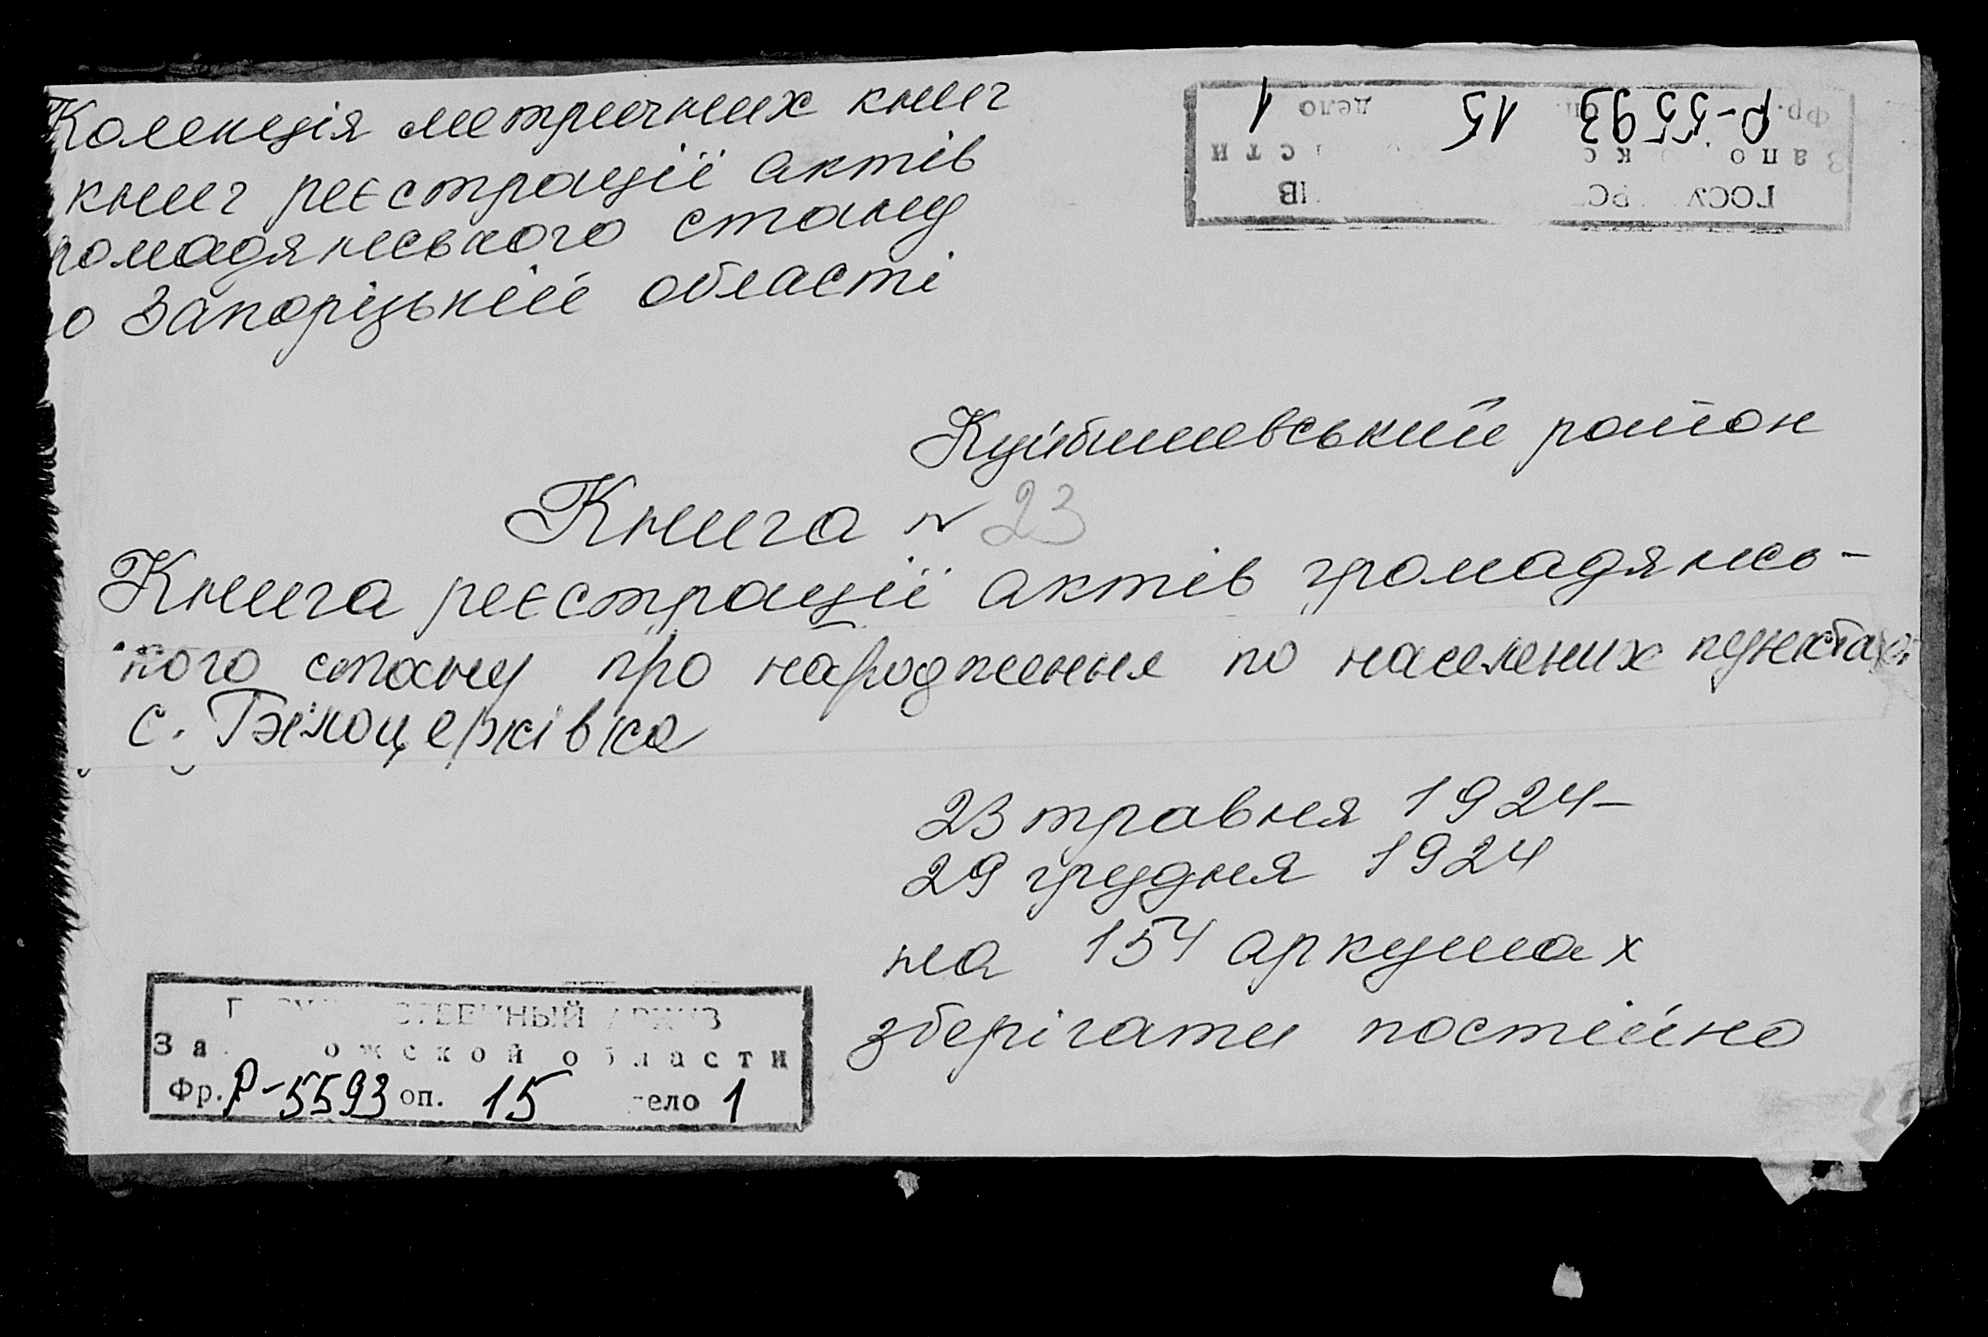 Колекція метричних книг
книг реєстрації актів
ромадянського стану
о Запорізькій області
Фр. Р-5593 15 дело 1
Куйбишевський район
Книга № 23
Книга реєстрації актів громадянсь-
кого стану про народження по населених пунктах:
с. Білоцерківка
23 травня 1924-
29 грудня 1924
на 154 аркушах
зберігати постійно
Фр. Р-5593 оп. 15 дело 1